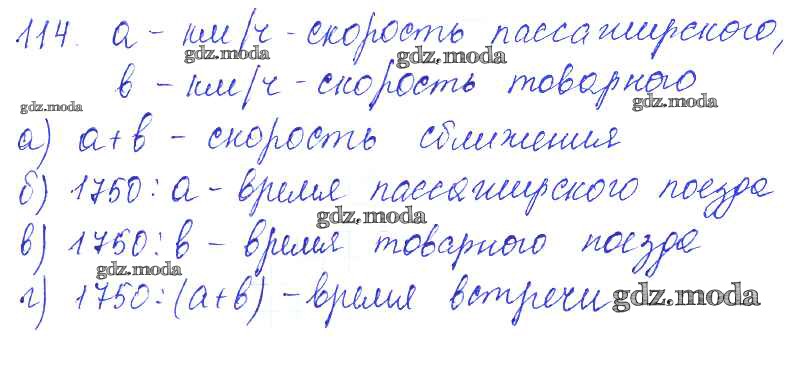 114. a - км/ч - скорость пассажирского,
gdz.moda gdz.moda
в - км/ч - скорость товарного
gdz.moda gdz.moda
а) a+в - скорость сближения
б) 1750:a - время пассажирского поезда
gdz.moda
в) 1750:в - время товарного поезда
gdz.moda
г) 1750:(a+в) - время встречи gdz.moda